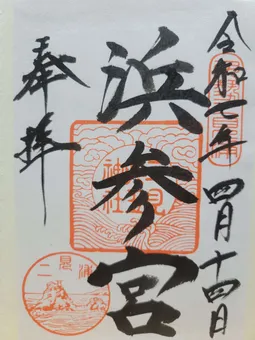 令和七年 四月十四日
浜参宮
奉拝
二見